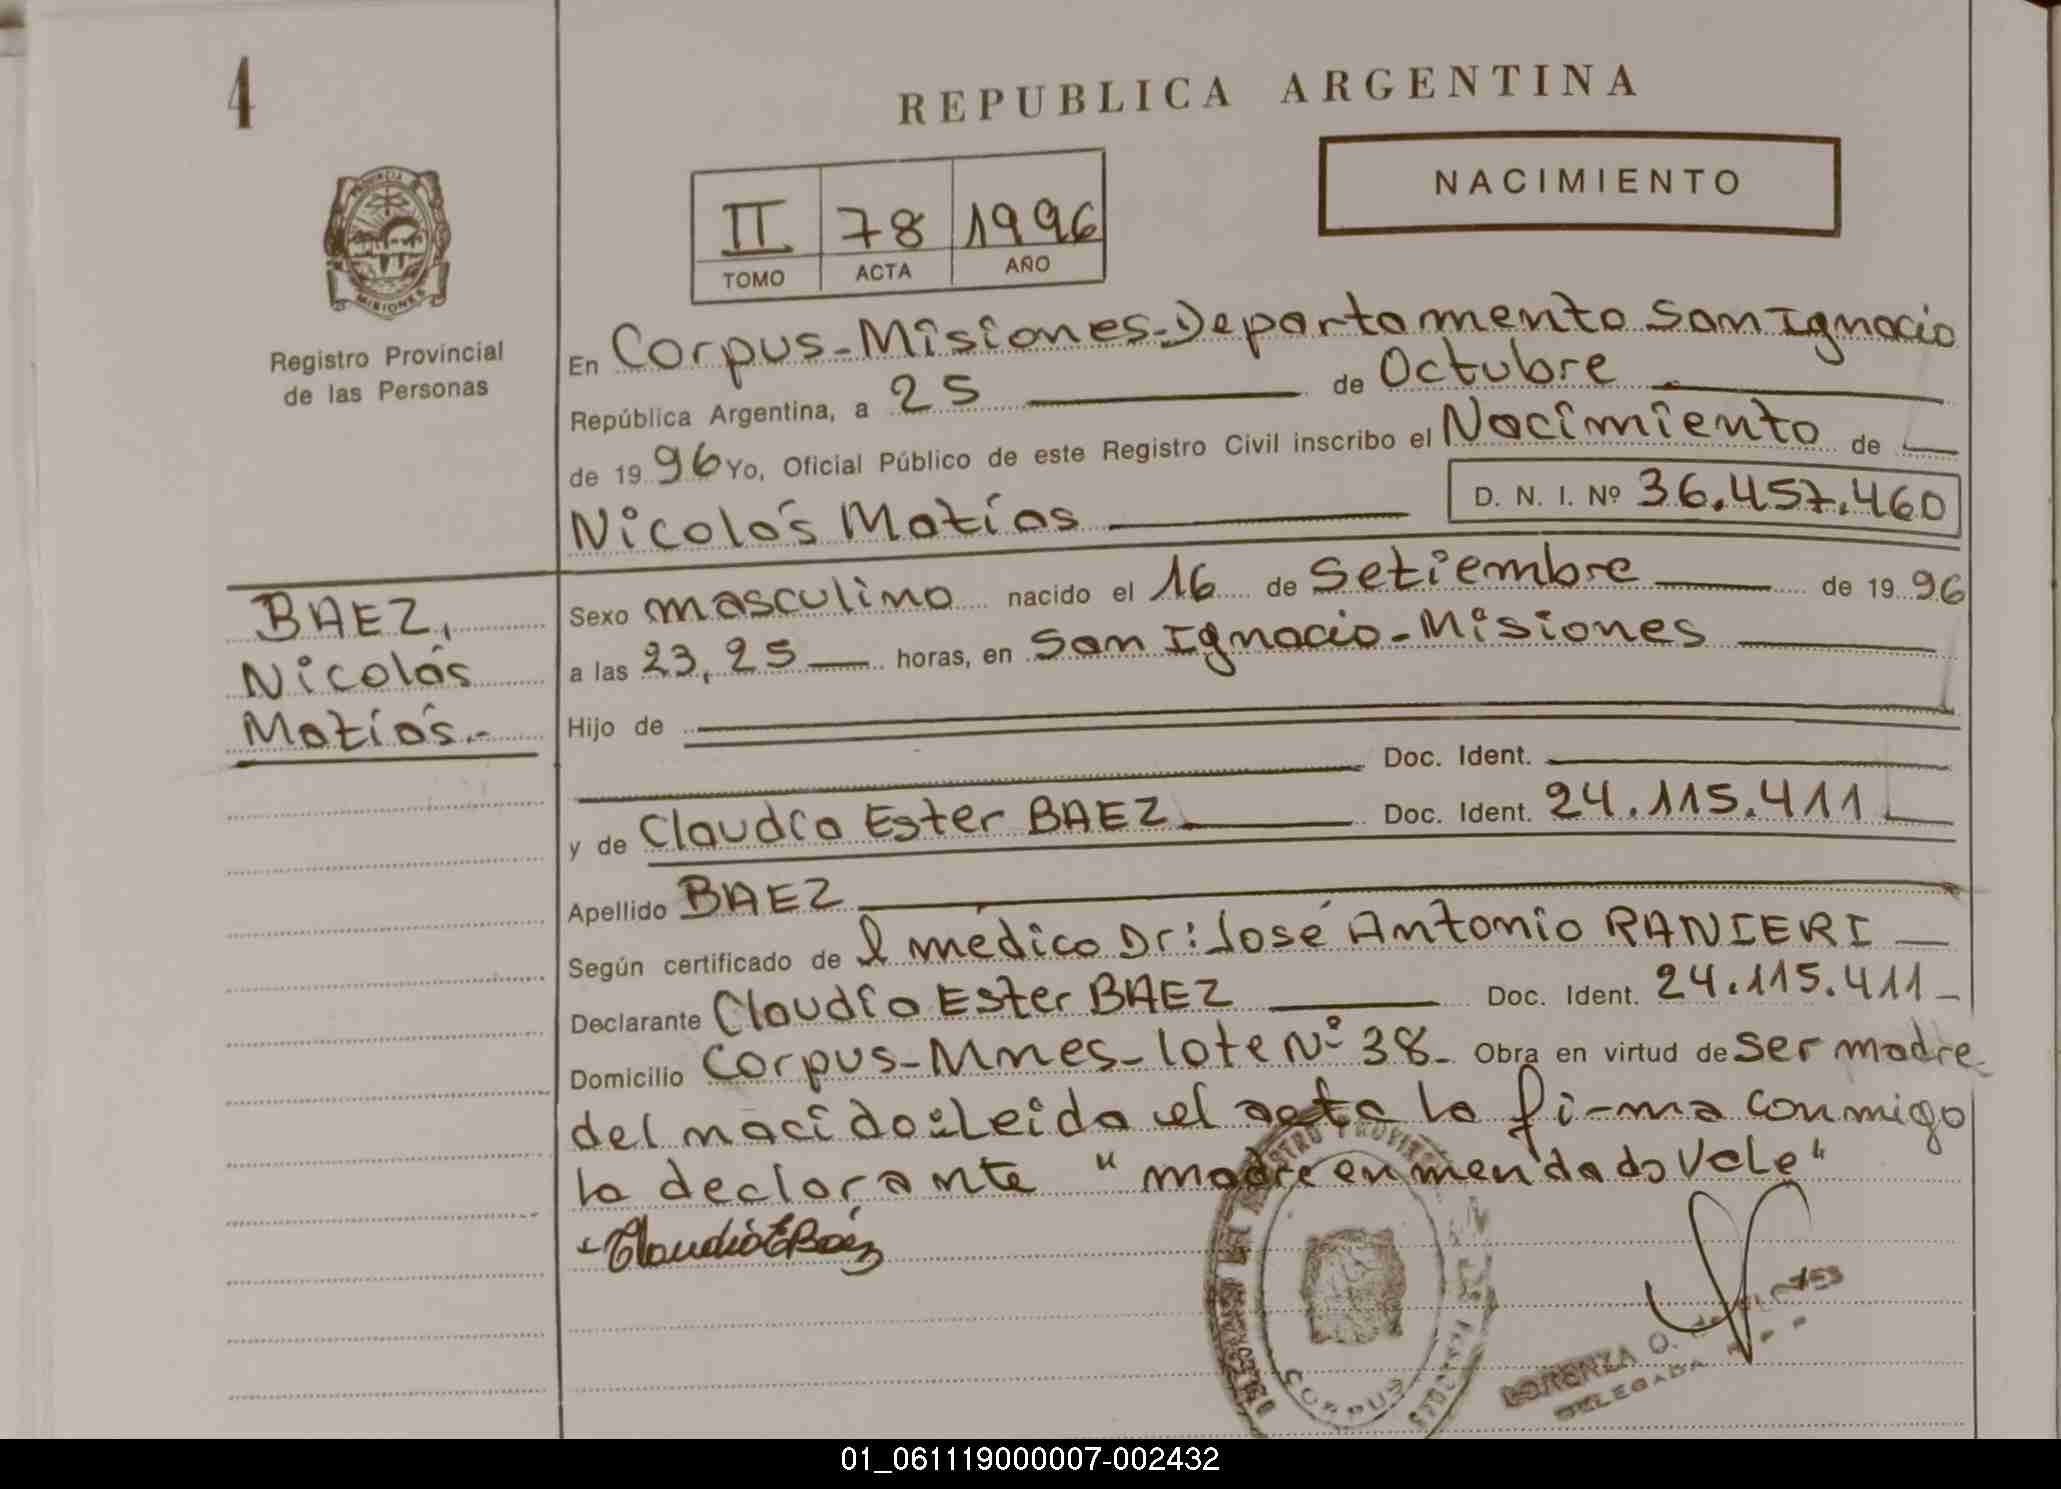 4
REPUBLICA ARGENTINA
NACIMIENTO
II 78 1996
TOMO ACTA AÑO
PROVINCIA
MISIONES
Registro Provincial
de las Personas
En Corpus-Misiones-Departamento San Ignacio
República Argentina, a 25 de Octubre
de 1996 Yo, Oficial Público de este Registro Civil inscribo el Nacimiento de
Nicolás Matías D. N. I. Nº 36.457.460
BAEZ,
Nicolás
Matías.-
Sexo masculino nacido el 16 de Setiembre de 1996
a las 23,25 horas, en San Ignacio-Misiones
Hijo de
Doc. Ident.
y de Claudia Ester BAEZ Doc. Ident. 24.115.411
Apellido BAEZ
Según certificado del médico Dr: José Antonio RANIERI
Declarante Claudia Ester BAEZ Doc. Ident. 24.115.411-
Domicilio Corpus-Mnes-lote Nº 38- Obra en virtud de ser madre
del nacido: Leida el acta la fi-ma conmigo
la declarante "madre enmendado Vale"
Claudia E Baez
CORPUS
LORENZA O.
DELEGADA
01_061119000007-002432